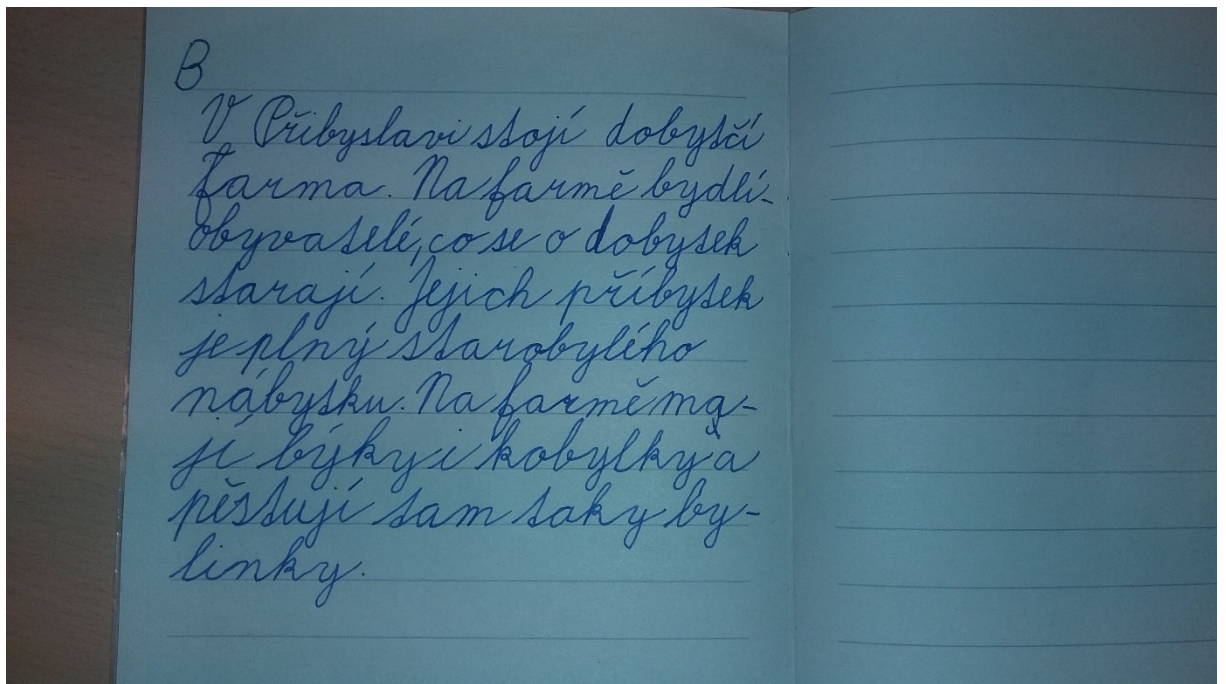 B
V Přibyslavi stojí dobytčí
farma. Na farmě bydlí-
obyvatelé, co se o dobytek
starají. Jejich příbytek
je plný starobylého
nábytku. Na farmě ma-
jí býky i kobylky a
pěstují tam taky by-
linky.